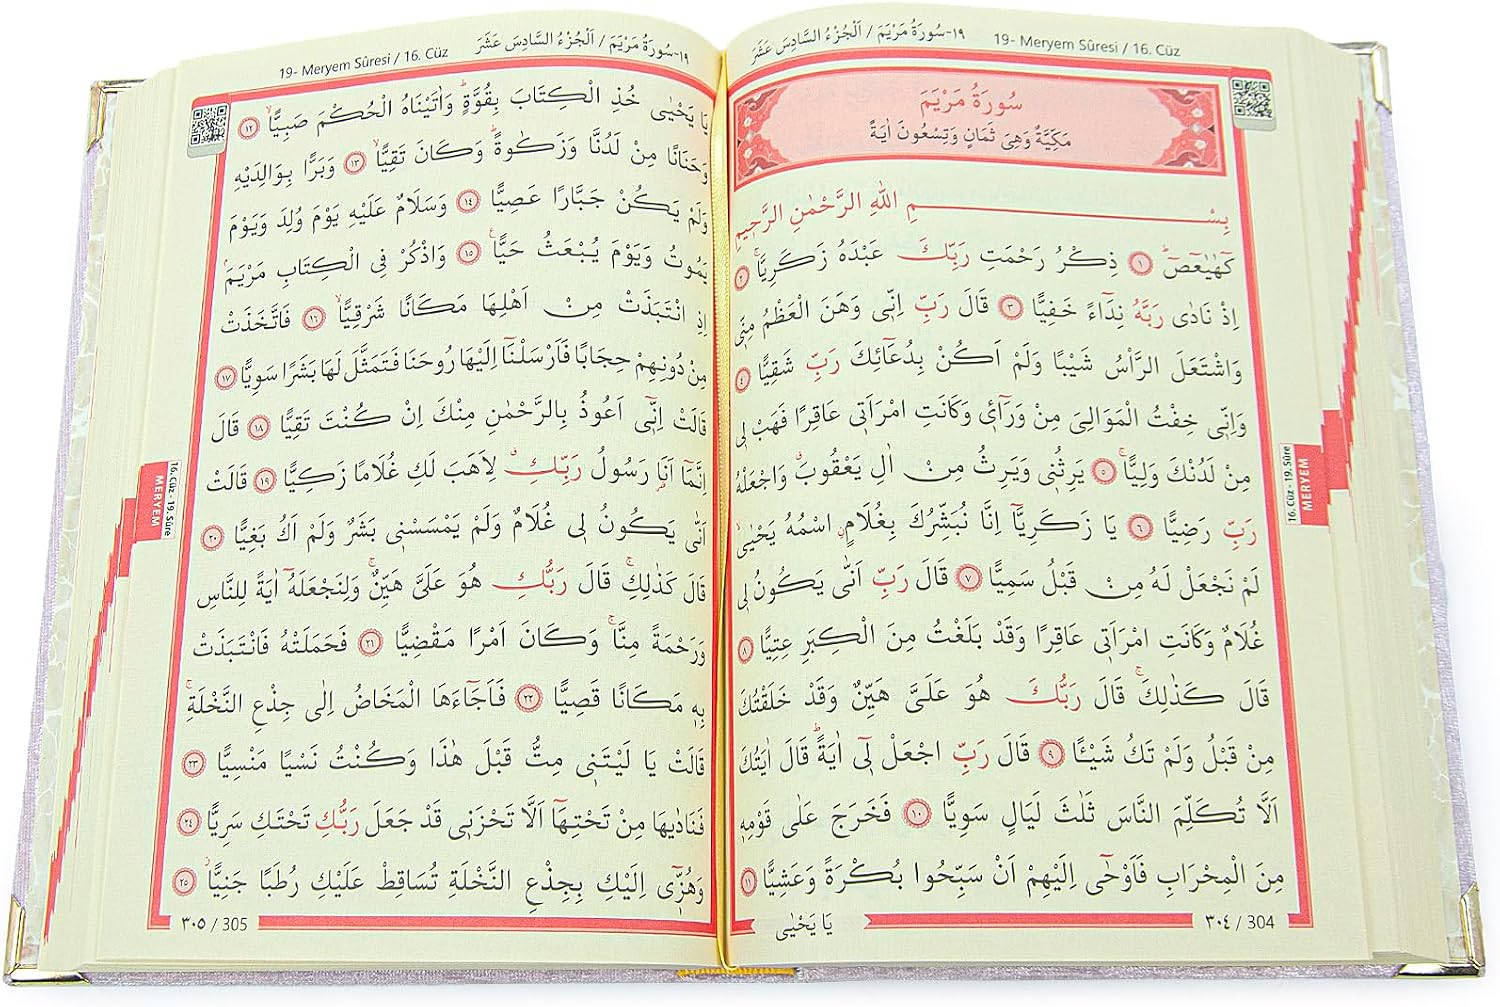 ١٩-سُورَةُ مَرْيَمَ / اَلْجُزْءُ السَّادِسَ عَشَرَ
19- Meryem Sûresi / 16. Cüz
سُورَةُ مَرْيَمَ
مَكِّيَّةٌ وَهِىَ ثَمَانٍ وَتِسْعُونَ اٰيَةً
بِسْمِ اللّٰهِ الرَّحْمٰنِ الرَّح۪يمِ
كٓهٰيٰعٓصٓ ۜ ﴿١﴾ ذِكْرُ رَحْمَتِ رَبِّكَ عَبْدَهُ زَكَرِيَّاۚ ﴿٢﴾
اِذْ نَادٰى رَبَّهُ نِدَٓاءً خَفِيًّا ﴿٣﴾ قَالَ رَبِّ اِنّ۪ى وَهَنَ الْعَظْمُ مِنّ۪ى
وَاشْتَعَلَ الرَّاْسُ شَيْبًا وَلَمْ اَكُنْ بِدُعَٓائِكَ رَبِّ شَقِيًّا ﴿٤﴾
وَاِنّ۪ى خِفْتُ الْمَوَالِىَ مِنْ وَرَٓاء۪ى وَكَانَتِ امْرَاَت۪ى عَاقِرًا فَهَبْ ل۪ى
مِنْ لَدُنْكَ وَلِيًّاۙ ﴿٥﴾ يَرِثُن۪ى وَيَرِثُ مِنْ اٰلِ يَعْقُوبَۗ وَاجْعَلْهُ
رَبِّ رَضِيًّا ﴿٦﴾ يَا زَكَرِيَّٓا اِنَّا نُبَشِّرُكَ بِغُلَامٍۨ اسْمُهُ يَحْيٰىۙ
لَمْ نَجْعَلْ لَهُ مِنْ قَبْلُ سَمِيًّا ﴿٧﴾ قَالَ رَبِّ اَنّٰى يَكُونُ ل۪ى
غُلَامٌ وَكَانَتِ امْرَاَت۪ى عَاقِرًا وَقَدْ بَلَغْتُ مِنَ الْكِبَرِ عِتِيًّا ﴿٨﴾
قَالَ كَذٰلِكَۚ قَالَ رَبُّكَ هُوَ عَلَىَّ هَيِّنٌ وَقَدْ خَلَقْتُكَ
مِنْ قَبْلُ وَلَمْ تَكُ شَيْـًٔا ﴿٩﴾ قَالَ رَبِّ اجْعَلْ ل۪ٓى اٰيَةًۜ قَالَ اٰيَتُكَ
اَلَّا تُكَلِّمَ النَّاسَ ثَلٰثَ لَيَالٍ سَوِيًّا ﴿١٠﴾ فَخَرَجَ عَلٰى قَوْمِه۪
مِنَ الْمِحْرَابِ فَاَوْحٰٓى اِلَيْهِمْ اَنْ سَبِّحُوا بُكْرَةً وَعَشِيًّا ﴿١١﴾
٣٠٤ / 304
يَا يَحْيٰى
16. Cüz - 19. Sûre
MERYEM
١٩-سُورَةُ مَرْيَمَ / اَلْجُزْءُ السَّادِسَ عَشَرَ
19- Meryem Sûresi / 16. Cüz
يَا يَحْيٰى خُذِ الْكِتَابَ بِقُوَّةٍۜ وَاٰتَيْنَاهُ الْحُكْمَ صَبِيًّاۙ ﴿١٢﴾
وَحَنَانًا مِنْ لَدُنَّا وَزَكٰوةًۜ وَكَانَ تَقِيًّاۙ ﴿١٣﴾ وَبَرًّا بِوَالِدَيْهِ
وَلَمْ يَكُنْ جَبَّارًا عَصِيًّا ﴿١٤﴾ وَسَلَامٌ عَلَيْهِ يَوْمَ وُلِدَ وَيَوْمَ
يَمُوتُ وَيَوْمَ يُبْعَثُ حَيًّاۚ ﴿١٥﴾ وَاذْكُرْ فِى الْكِتَابِ مَرْيَمَۢ
اِذِ انْتَبَذَتْ مِنْ اَهْلِهَا مَكَانًا شَرْقِيًّاۙ ﴿١٦﴾ فَاتَّخَذَتْ
مِنْ دُونِهِمْ حِجَابًا فَاَرْسَلْنَٓا اِلَيْهَا رُوحَنَا فَتَمَثَّلَ لَهَا بَشَرًا سَوِيًّا ﴿١٧﴾
قَالَتْ اِنّ۪ٓى اَعُوذُ بِالرَّحْمٰنِ مِنْكَ اِنْ كُنْتَ تَقِيًّا ﴿١٨﴾ قَالَ
اِنَّمَٓا اَنَا۬ رَسُولُ رَبِّكِۗ لِاَهَبَ لَكِ غُلَامًا زَكِيًّا ﴿١٩﴾ قَالَتْ
اَنّٰى يَكُونُ ل۪ى غُلَامٌ وَلَمْ يَمْسَسْن۪ى بَشَرٌ وَلَمْ اَكُ بَغِيًّا ﴿٢٠﴾
قَالَ كَذٰلِكِۚ قَالَ رَبُّكِ هُوَ عَلَىَّ هَيِّنٌۚ وَلِنَجْعَلَهُٓ اٰيَةً لِلنَّاسِ
وَرَحْمَةً مِنَّاۚ وَكَانَ اَمْرًا مَقْضِيًّا ﴿٢١﴾ فَحَمَلَتْهُ فَانْتَبَذَتْ
بِه۪ مَكَانًا قَصِيًّا ﴿٢٢﴾ فَاَجَٓاءَهَا الْمَخَاضُ اِلٰى جِذْعِ النَّخْلَةِۚ
قَالَتْ يَا لَيْتَن۪ى مِتُّ قَبْلَ هٰذَا وَكُنْتُ نَسْيًا مَنْسِيًّا ﴿٢٣﴾
فَنَادٰيهَا مِنْ تَحْتِهَٓا اَلَّا تَحْزَن۪ى قَدْ جَعَلَ رَبُّكِ تَحْتَكِ سَرِيًّا ﴿٢٤﴾
وَهُزّ۪ٓى اِلَيْكِ بِجِذْعِ النَّخْلَةِ تُسَاقِطْ عَلَيْكِ رُطَبًا جَنِيًّاۘ ﴿٢٥﴾
٣٠٥ / 305
16. Cüz - 19. Sûre
MERYEM